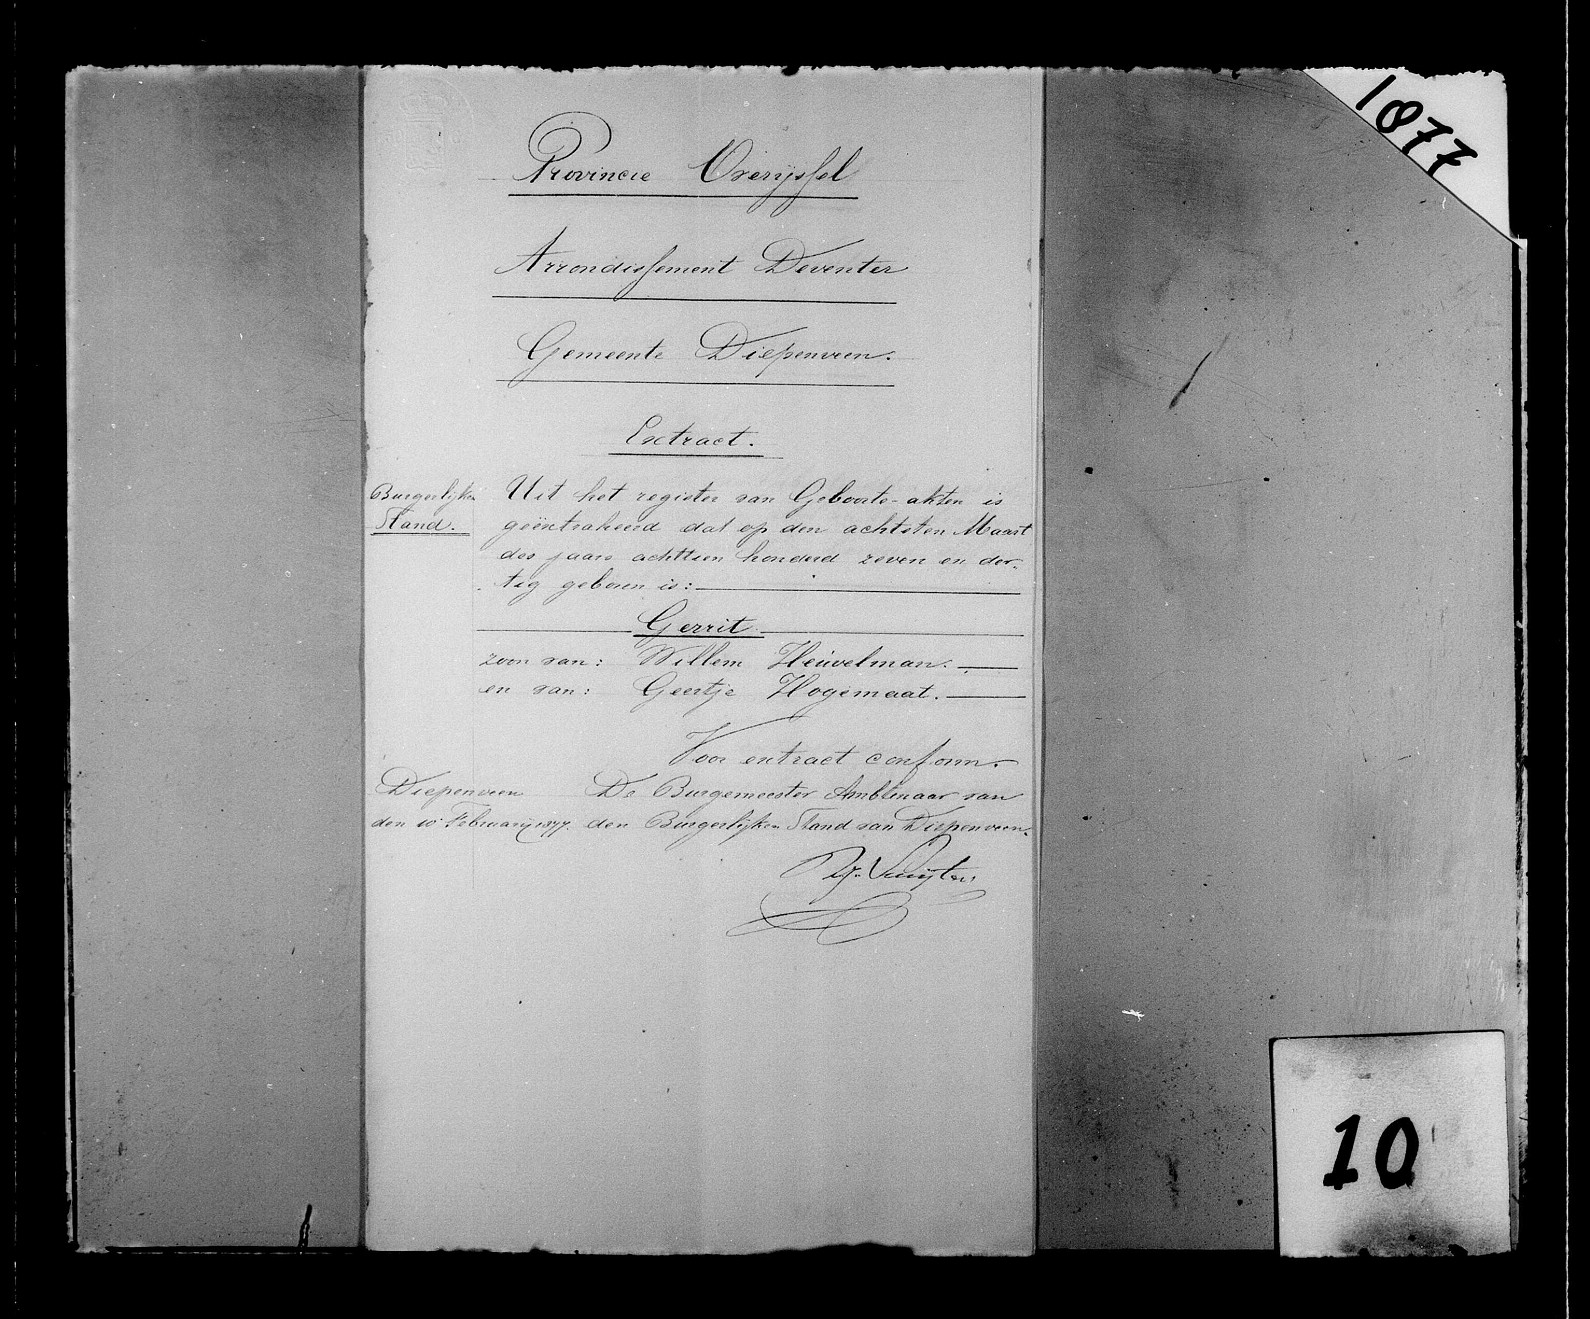 1877
Provincie Overijssel
Arrondissement Deventer
Gemeente Diepenveen.
Extract.
Burgerlijken
Stand.
Uit het register van Geboorte-akten is
geëxtraheerd dat op den achtsten Maart
des jaars achttien honderd zeven en der-
tig geboren is:
Gerrit
zoon van: Willem Heuvelman.
en van: Geertje Hogemaat.
Voor extract conform.
Diepenveen
den 10 Februarij 1877.
De Burgemeester Ambtenaar van
den Burgerlijken Stand van Diepenveen.
10